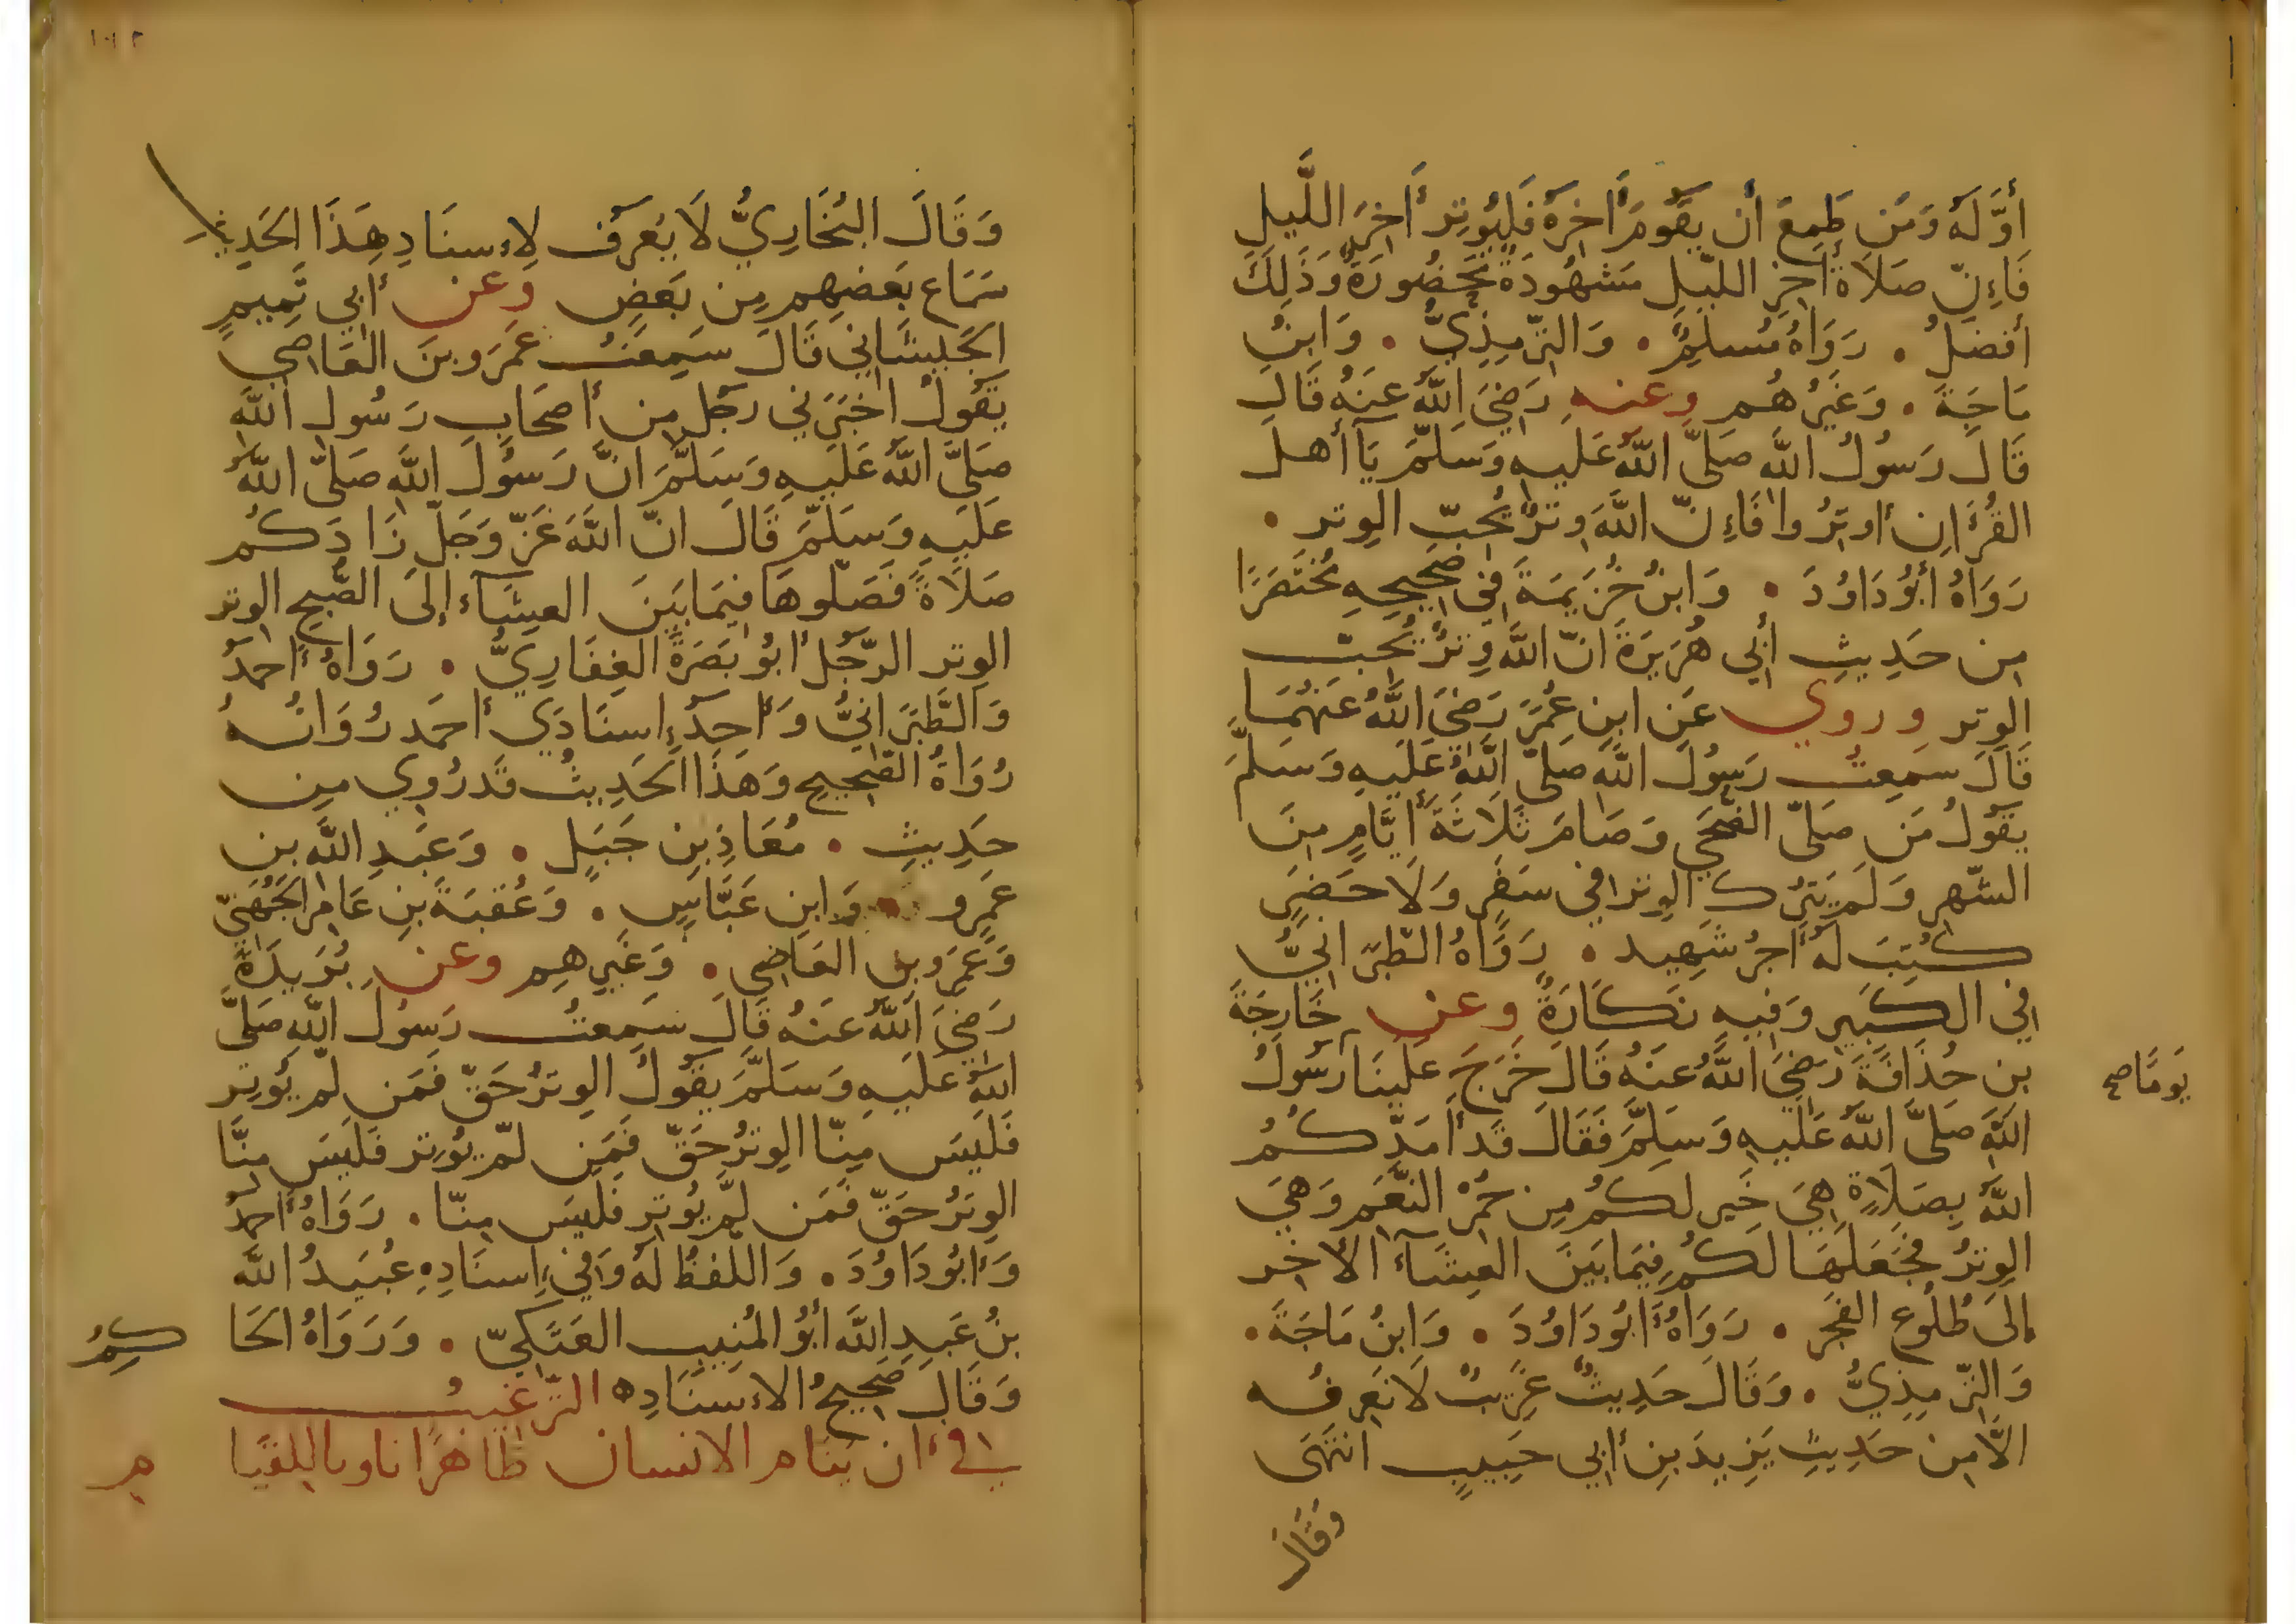 أَوَّلَهُ وَمَن طَمِعَ أَن يَقُومَ أَخِرَهُ فَليُوتِر أَخِرَ اللَّيلِ
فَاءِنّ صَلَاةَ أَخِرِ الليلِ مَشهُودَةٌ مَحضُورَةٌ وَذَلِكَ
أفضَلُ . رَوَاهُ مُسلِمٌ . وَالتِّرمِذِيُّ . وَابنُ
مَاجَةَ . وَغَيرُهُم وعنه رَضِيَ اللَّهُ عَنهُ قَالَ
قَالَ رَسُولُ اللَّه صَلَّى اللَّهُ عَلَيهِ وَسَلَّمَ يَآ أهل
القُرأَانِ أوتِرُوا فَاءِنّ اللَّهَ وِترٌ يُحِبّ الوِتر .
رَوَاهُ أَبُودَاوُدَ . وَابنُ خُزَيمَةَ فِي صَحِيحِهِ مُختَصَرًا
مِن حَدِيثِ أَبِي هُرَيرَةَ انّ اللَّهَ وِترٌ يُحِبّ
الوِتر وروي عَنِ ابنِ عُمَرَ رَضِيَ اللَّهُ عَنهُمَا
قَالَ سَمِعتُ رَسُولَ اللَّهِ صَلَّى اللَّهُ عَلَيهِ وَسَلَّمَ
يَقُولُ مَن صَلّى الضُّحَى وَصَامَ ثَلَاثَةَ أَيَّامٍ مِنَ
الشّهرِ وَلَم يَترُك الوِترَ فِي سَفَرٍ وَلَا حَضَرٍ
كُتِبَ لَهُ أَجرُ شَهِيد . رَوَاهُ الطّبَرَانِيُّ
فِي الكَبِيرِ وَفِيهِ نَكَارَةٌ وعن خَارِجَةَ
بن حُذَافَةَ رَضِيَ اللَّهُ عَنهُ قَالَ خَرَجَ عَلَينَا رَسُولُ
يَومًا صح
اللَّهِ صَلَّى اللَّهُ عَلَيهِ وَسَلَّمَ فَقَالَ قَد أَمَدّكُمُ
اللَّهُ بِصَلَاةٍ هِيَ خَير لَكُم مِن حُمْرِ النَّعَمِ وَهِيَ
الوِترُ فَجَعَلَهَا لَكُم فِيمَا بَينَ العِشَآءَ الأَخِر
الَى طُلُوعِ الفَجر . رَوَاهُ أَبُودَاوُدَ . وَابنُ مَاجَةَ .
وَالتِّرمِذِيُّ . وَقَالَ حَدِيثٌ غَرِيبٌ لَا نَعرِفُه
الَّا مِن حَدِيثِ يَزِيدَ بنِ أَبِي حَبِيبٍ انتَهَى
وَقَالَ
١٠٢
وَقَالَ البُخَارِيُّ لَا يُعرَف لاءِسنَادِ هَذَا الحَدِيثِ
سَمَاع بَعضِهِم مِن بَعضٍ وعن أَبِي تَمِيمٍ
الجَيشَانِي قَالَ سَمِعتُ عَمرَو بنَ العَاصِي
يَقُولُ اخبَرَنِي رَجُل مِن أَصحَابِ رَسُولِ اللَّهِ
صَلَّى اللَّهُ عَلَيهِ وَسَلَّمَ انَّ رَسُولَ اللَّهِ صَلَّى اللَّهُ
عَلَيهِ وَسَلَّمَ قَالَ انّ اللَّهَ عَزّ وَجَلّ زَادَكُم
صَلَاةً فَصَلّوهَا فِيمَا بَينَ العِشَآء إِلَى الصُّبحِ الوِتر
الوِتر الرَّجُل أَبُو بَصرَةَ الغِفَارِيُّ . رَوَاهُ أَحمَدُ
وَالطَّبَرَانِيُّ وَأَحِدُ ءِاسنَادَي أَحمَد رُوَاتُهُ
رُوَاةُ الصّحِيحِ وَهَذَا الحَدِيثُ قَد رُوِي مِن
حَدِيثِ . مُعَاذِ بنِ جَبَلٍ . وَعَبدِ اللَّه بن
عَمرٍو . وَابنِ عَبَّاسٍ . وَعُقبَةَ بنِ عَامِرٍ الجُهَنِيّ
وَعَمرِو بن العَاصِي . وَغَيرِهِم وعن بُرَيدَةَ
رَضِيَ اللَّهُ عَنهُ قَالَ سَمِعتُ رَسُولَ اللَّهِ صَلَّى
اللَّهُ عَلَيهِ وَسَلَّمَ يَقُولُ الوِترُ حَقّ فَمَن لَم يُوتِر
فَلَيسَ مِنّا الوِترُ حَقّ فَمَن لَم يُوتِر فَلَيسَ مِنَّا
الوِترُ حَقّ فَمَن لَم يُوتِر فَلَيسَ مِنّا . رَوَاهُ أَحمَدُ
وَأَبُودَاوُدَ . وَاللفظُ لَهُ وَفِي ءِاسنَادِهِ عُبَيدُ اللَّه
بنُ عَبدِ اللَّه أَبُو المُنِيبِ العَتَكِيّ . وَرَوَاهُ الحَاكِمُ
وَقَالَ صَحِيحُ الاءِسنَادِ ه الترغيب
في ان ينام الانسان طاهرا ناويا للقيام